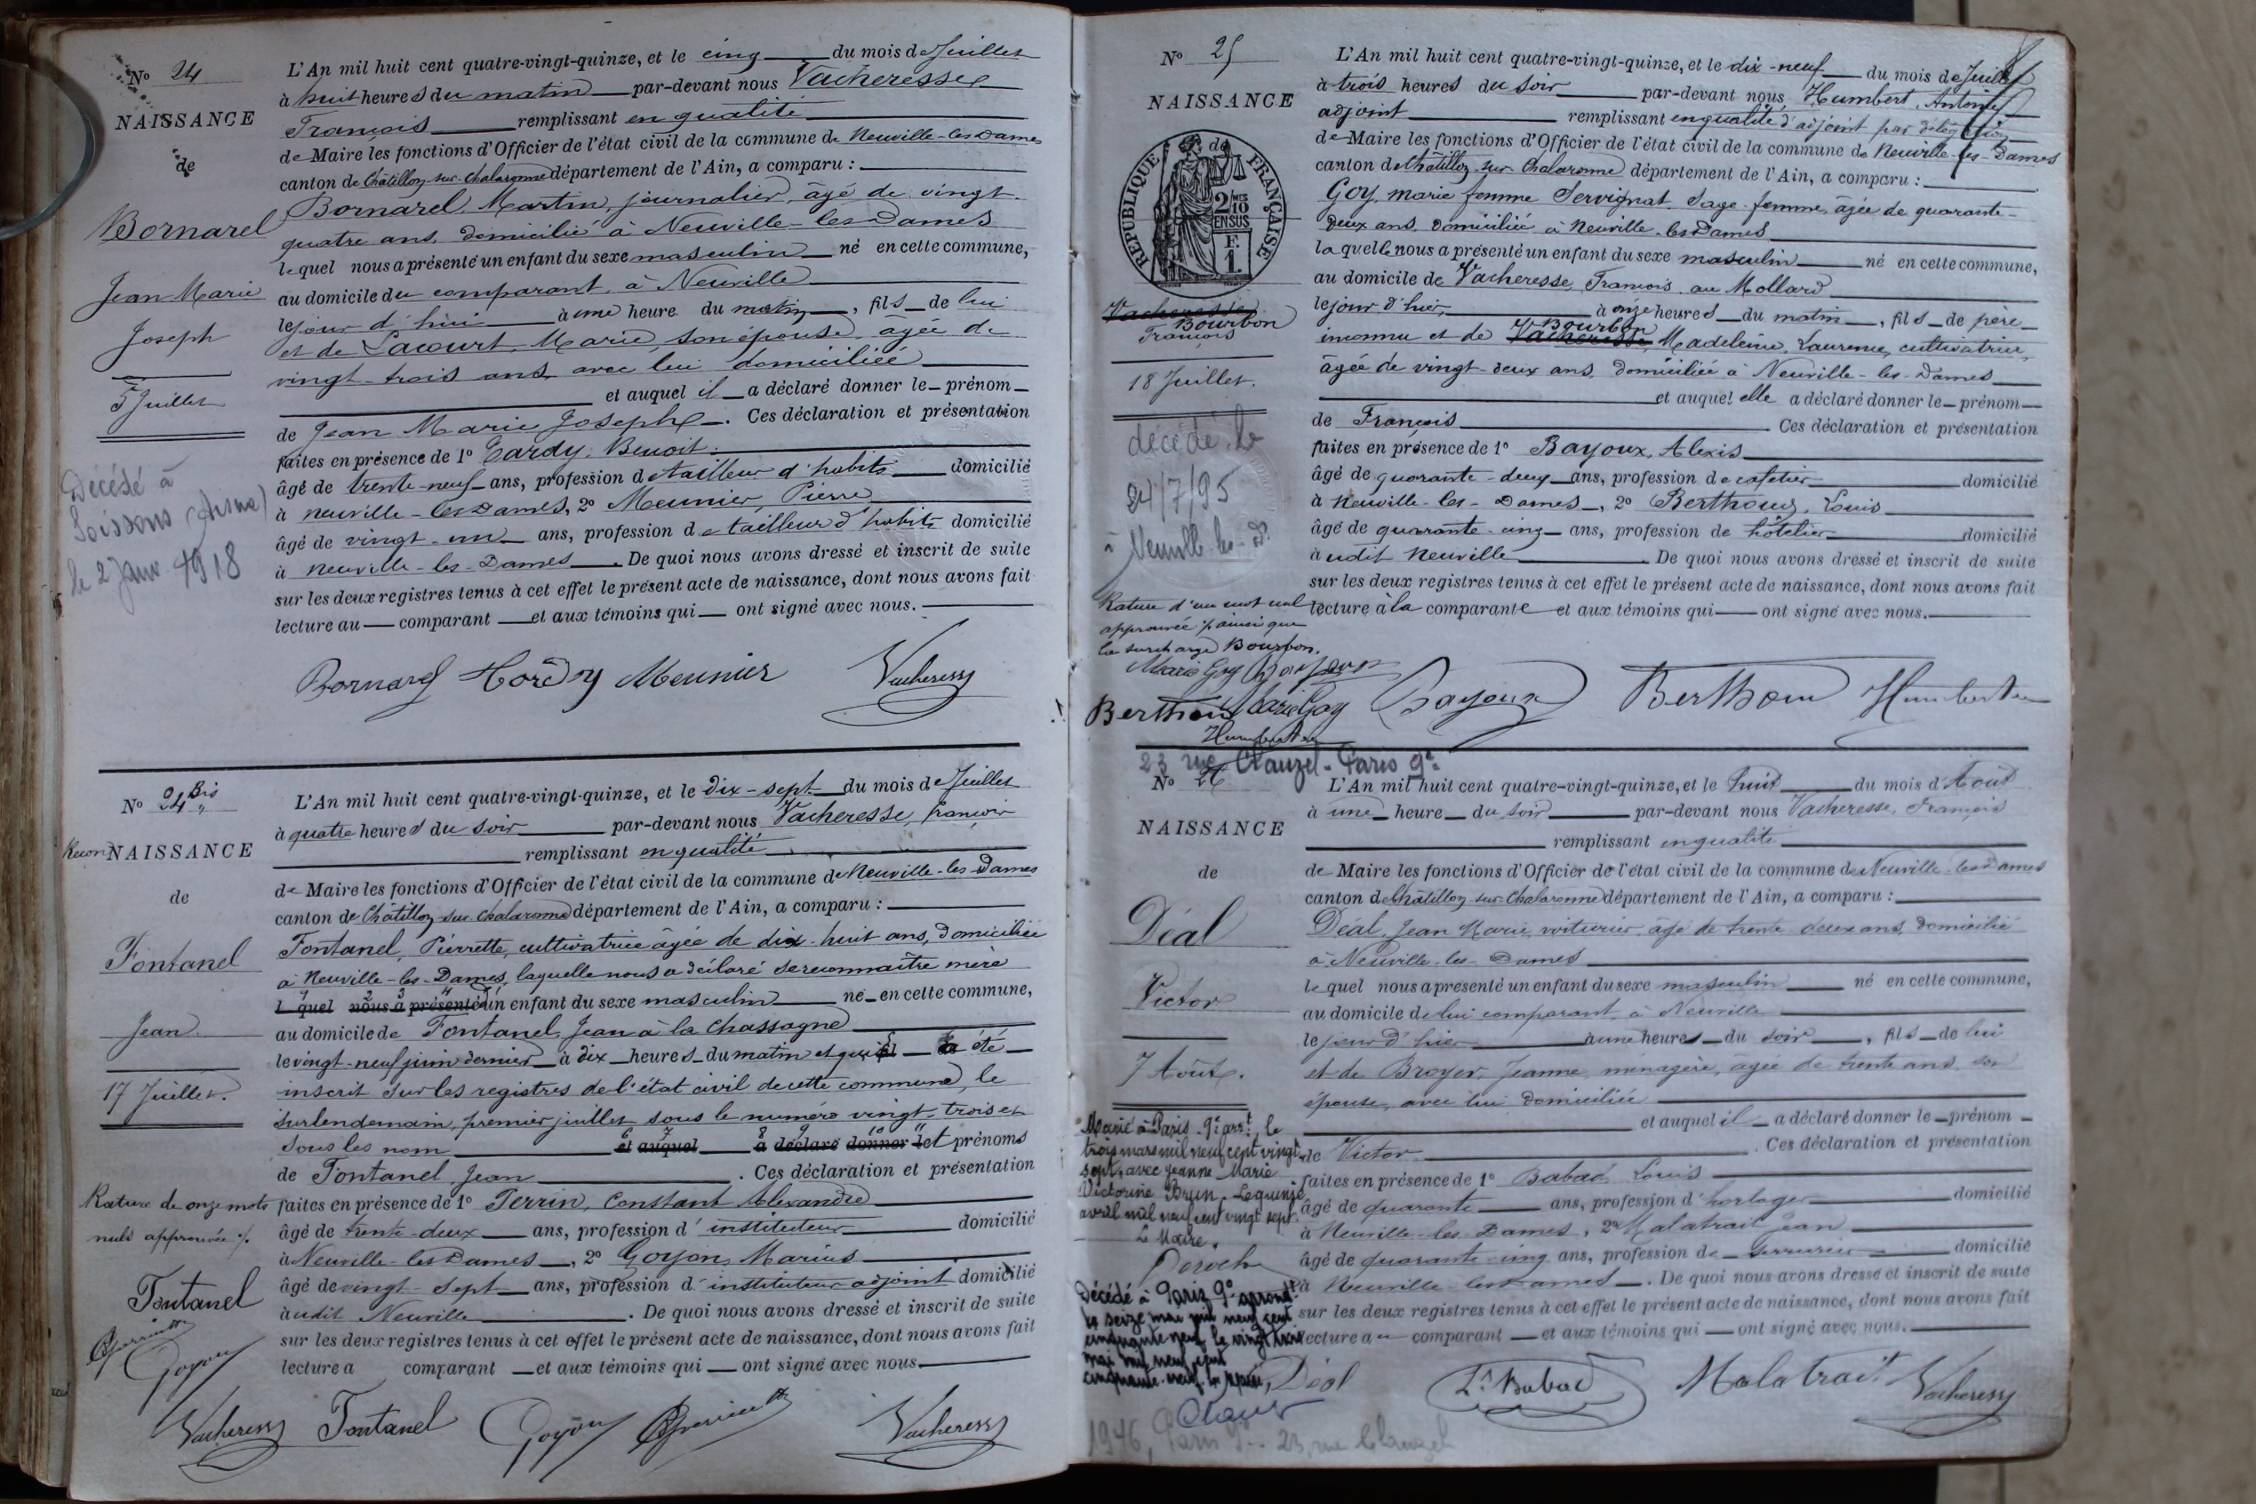 Nº 24
NAISSANCE
de
Bornarel
Jean Marie
Joseph
5 Juillet
Décédé à
Soissons (Aisne)
le 2 Janv. 1918
L'An mil huit cent quatre-vingt-quinze, et le cinq du mois de Juillet
à huit heures du matin par-devant nous Vacheresse
François remplissant en qualité
de Maire les fonctions d'Officier de l'état civil de la commune de Neuville-les-Dames
canton de Châtillon-sur-Chalaronne département de l'Ain, a comparu :
Bornarel, Martin, journalier, âgé de vingt-
quatre ans, domicilié à Neuville-les-Dames
lequel nous a présenté un enfant du sexe masculin né en cette commune,
au domicile du comparant, à Neuville
le jour d'hui à une heure du matin, fils de lui
et de Lacourt, Marie, son épouse, âgée de
vingt-trois ans, avec lui domiciliée
et auquel il a déclaré donner le prénom
de Jean Marie Joseph. Ces déclaration et présentation
faites en présence de 1º Tardy, Benoit
âgé de trente-neuf ans, profession de tailleur d'habits domicilié
à Neuville-les-Dames, 2º Meunier, Pierre
âgé de vingt-un ans, profession de tailleur d'habits domicilié
à Neuville-les-Dames. De quoi nous avons dressé et inscrit de suite
sur les deux registres tenus à cet effet le présent acte de naissance, dont nous avons fait
lecture au comparant et aux témoins qui ont signé avec nous.
Bornarel Tardy Meunier Vacheresse
Nº 24 Bis
Recon NAISSANCE
de
Fontanel
Jean
17 Juillet.
Rature de onze mots
nuls approuvée ./.
Fontanel
Goyon
Vacheresse
L'An mil huit cent quatre-vingt-quinze, et le dix-sept du mois de Juillet
à quatre heures du soir par-devant nous Vacheresse, François
remplissant en qualité
de Maire les fonctions d'Officier de l'état civil de la commune de Neuville-les-Dames
canton de Châtillon-sur-Chalaronne département de l'Ain, a comparu :
Fontanel, Pierrette, cultivatrice âgée de dix-huit ans, domiciliée
à Neuville-les-Dames, laquelle nous a déclaré se reconnaître mère
1 2 3 4
l quel nous a présenté d'un enfant du sexe masculin né en cette commune,
au domicile de Fontanel, Jean à la Chassagne
le vingt-neuf juin dernier à dix heures du matin et qui a été
inscrit sur les registres de l'état civil de cette commune, le
surlendemain, premier juillet sous le numéro vingt-trois et
6 7 8 9 10 11
sous les nom et auquel a déclaré donner let prénoms
de Fontanel, Jean. Ces déclaration et présentation
faites en présence de 1º Perrin, Constant Alexandre
âgé de trente-deux ans, profession d'instituteur domicilié
à Neuville-les-Dames, 2º Goyon, Marius
âgé de vingt-sept ans, profession d'instituteur adjoint domicilié
audit Neuville. De quoi nous avons dressé et inscrit de suite
sur les deux registres tenus à cet effet le présent acte de naissance, dont nous avons fait
lecture a comparant et aux témoins qui ont signé avec nous
Fontanel Goyon Vacheresse
Nº 25
NAISSANCE
de
RÉPUBLIQUE FRANÇAISE
2/10 EN SUS
F.
1
Vacheresse
Bourbon
François
18 Juillet.
décédé le
24/7/95
à Neuville-les-D.
Rature d'un mot nul
approuvée ainsi que
la surcharge Bourbon.
Marie Goy Bayoux
Berthoux
Humbert
L'An mil huit cent quatre-vingt-quinze, et le dix-neuf du mois de Juillet
à trois heures du soir par-devant nous, Humbert, Antoine
adjoint remplissant en qualité d'adjoint par délégation
de Maire les fonctions d'Officier de l'état civil de la commune de Neuville-les-Dames
canton de Châtillon-sur-Chalaronne département de l'Ain, a comparu :
Goy, Marie femme Servignat Sage-femme, âgée de quarante-
deux ans, domiciliée à Neuville-les-Dames
laquelle nous a présenté un enfant du sexe masculin né en cette commune,
au domicile de Vacheresse, François au Mollard
le jour d'hier, à onze heures du matin, fils de père
inconnu et de Vacheresse Bourbon Madeleine, Laurence, cultivatrice,
âgée de vingt-deux ans, domiciliée à Neuville-les-Dames
et auquel elle a déclaré donner le prénom
de François Ces déclaration et présentation
faites en présence de 1º Bayoux, Alexis
âgé de quarante-deux ans, profession de cafetier domicilié
à Neuville-les-Dames, 2º Berthoux, Louis
âgé de quarante-cinq ans, profession de hôtelier domicilié
audit Neuville De quoi nous avons dressé et inscrit de suite
sur les deux registres tenus à cet effet le présent acte de naissance, dont nous avons fait
lecture à la comparante et aux témoins qui ont signé avec nous.
Marie Goy Bayoux Berthoux Humbert
23 rue Clauzel - Paris 9e
Nº 26
NAISSANCE
de
Déal
Victor
7 Août.
Marié à Paris 9e arrt, le
trois mars mil neuf cent vingt
sept, avec Jeanne Marie
Victorine Brun. Le quinze
avril mil neuf cent vingt sept.
Le Maire,
Décédé à Paris 9e arrondt
le seize mai mil neuf cent
cinquante neuf le vingt trois
mai mil neuf cent
cinquante neuf
L'An mil huit cent quatre-vingt-quinze, et le huit du mois d'Août
à une heure du soir par-devant nous Vacheresse, François
remplissant en qualité
de Maire les fonctions d'Officier de l'état civil de la commune de Neuville-les-Dames
canton de Châtillon-sur-Chalaronne département de l'Ain, a comparu :
Déal, Jean Marie, voiturier, âgé de trente-deux ans, domicilié
à Neuville-les-Dames
lequel nous a présenté un enfant du sexe masculin né en cette commune,
au domicile de lui comparant, à Neuville
le jour d'hier à une heures du soir, fils de lui
et de Broyer, Jeanne, ménagère, âgée de trente ans, son
épouse, avec lui domiciliée
et auquel il a déclaré donner le prénom
de Victor. Ces déclaration et présentation
faites en présence de 1º Babad, Louis
âgé de quarante ans, profession d'horloger domicilié
à Neuville-les-Dames, 2º Malatrait Jean
âgé de quarante-cinq ans, profession de serrurier domicilié
à Neuville-les-Dames. De quoi nous avons dressé et inscrit de suite
sur les deux registres tenus à cet effet le présent acte de naissance, dont nous avons fait
lecture au comparant et aux témoins qui ont signé avec nous.
Déal Ls Babad Malatrait Vacheresse
1946, Paris 9e.. 23, rue Clauzel